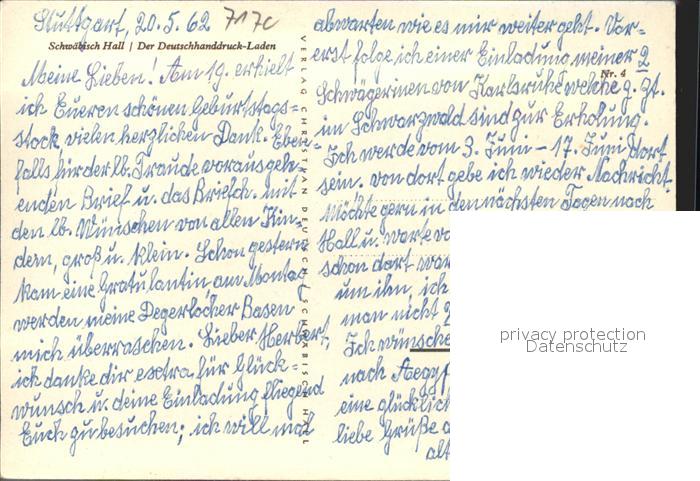 Stuttgart, 20.5.62
717c
Schwäbisch Hall | Der Deutschhanddruck-Laden
Meine Lieben! Am 19. erhielt
ich Eueren schönen Geburtstags-
stock, vielen herzlichen Dank. Eben-
falls für der lb. Traude vorausgeh-
enden Brief u. das Briefch. mit
den lb. Wünschen von allen Kin-
dern, groß u. klein. Schon gestern
kam eine Gratulantin am Montag
werden meine Degerlocher Basen
mich überraschen. Lieber Herbert,
ich danke dir extra für Glück-
wunsch u. deine Einladung fliegend
Euch zu besuchen; ich will mal
VERLAG CHRISTIAN DEUTSCH / SCHWÄBISCH HALL
abwarten wie es mir weiter geht. Vor-
erst folge ich einer Einladung meiner 2
Nr. 4
Schwägerinen von Karlsruhe welche z. Zt.
im Schwarzwald sind zur Erholung.
Ich werde vom 3. Juni – 17. Juni dort
sein. von dort gebe ich wieder Nachricht.
Möchte gern in den nächsten Tagen nach
Hall u. warte
schon dort war
um ihn, ich
man nicht
Ich wünsche
nach
eine glücklich
liebe Grüße
privacy protection
Datenschutz